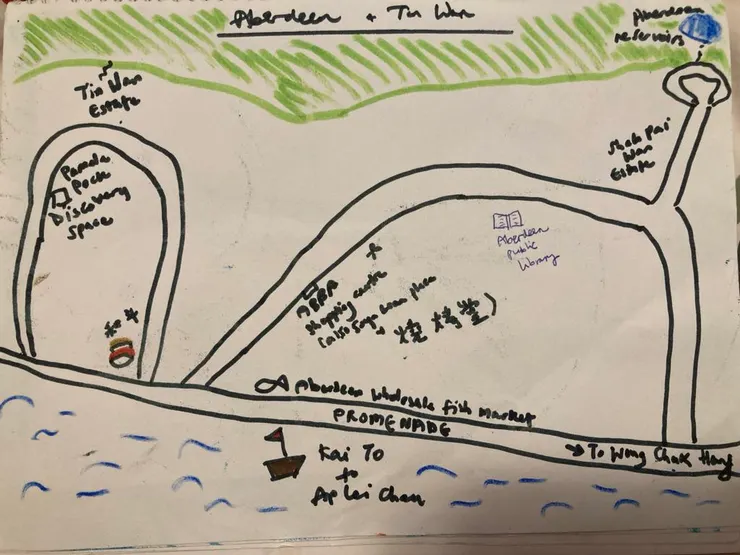 Aberdeen + Tin Wan
Aberdeen
reservoirs
Tin Wan
Estate
Shek Pai
Wan
Estate
Panda
Pock
Discovery
Space
Aberdeen
public
library
ABBA
shopping centre
(also
Aberdeen Wholesale fish market
PROMENADE
→ To Wong Chuk Hang
Kai To
to
Ap Lei Chau